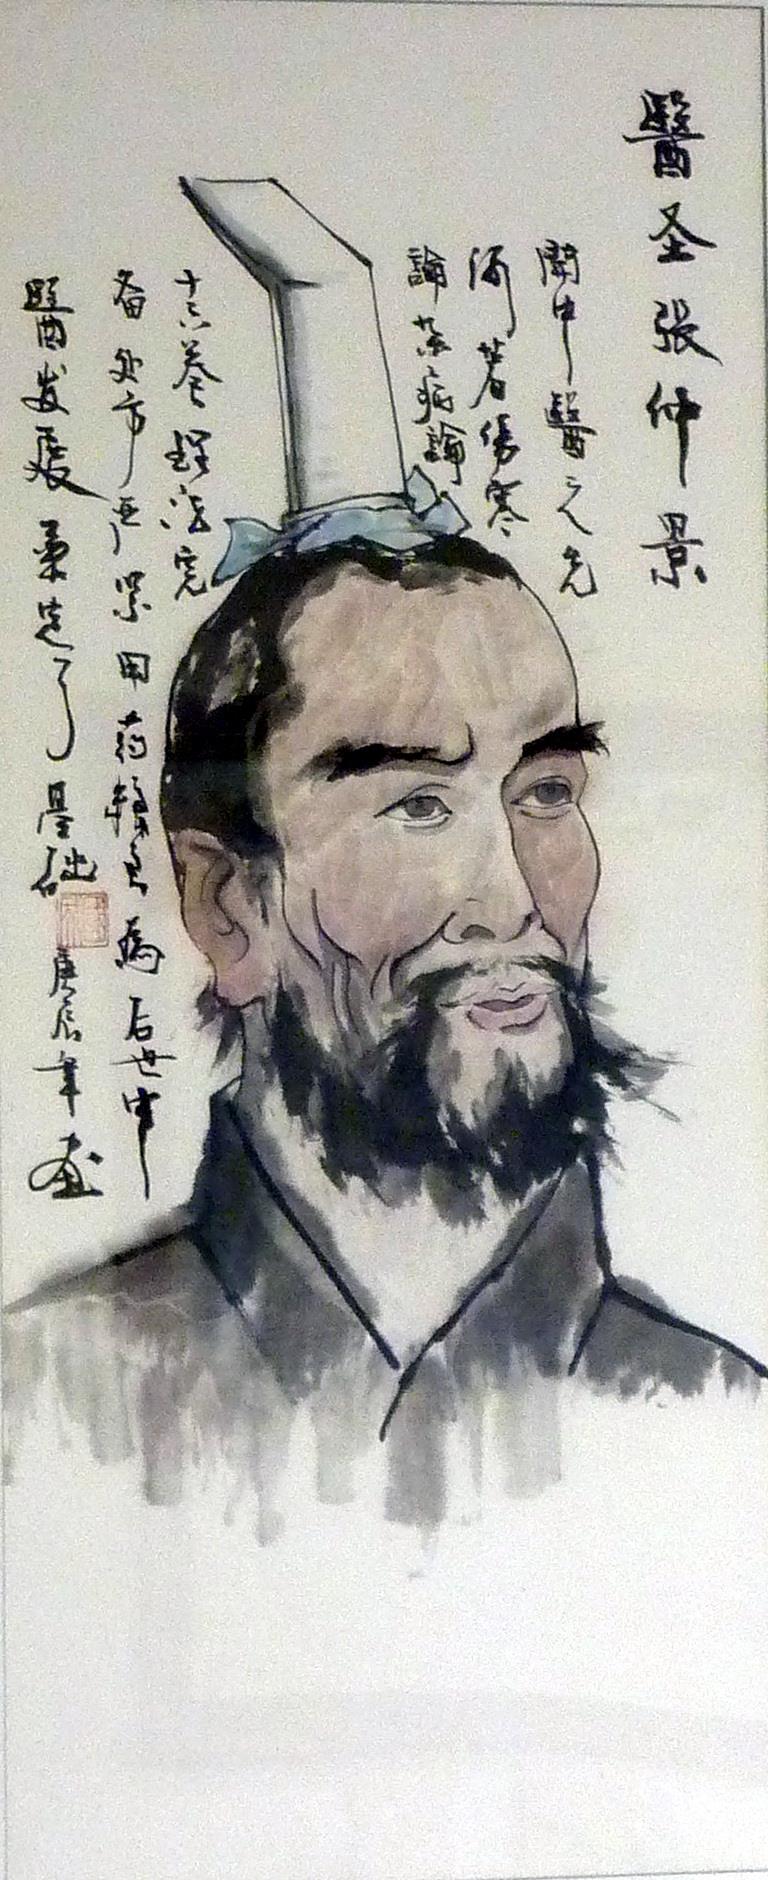 醫圣張仲景
開中醫之先
河著傷寒
論杂病論
十六卷理法完
备处方严紧用药精良為后世中
醫发展奠定了基础
庚辰年画